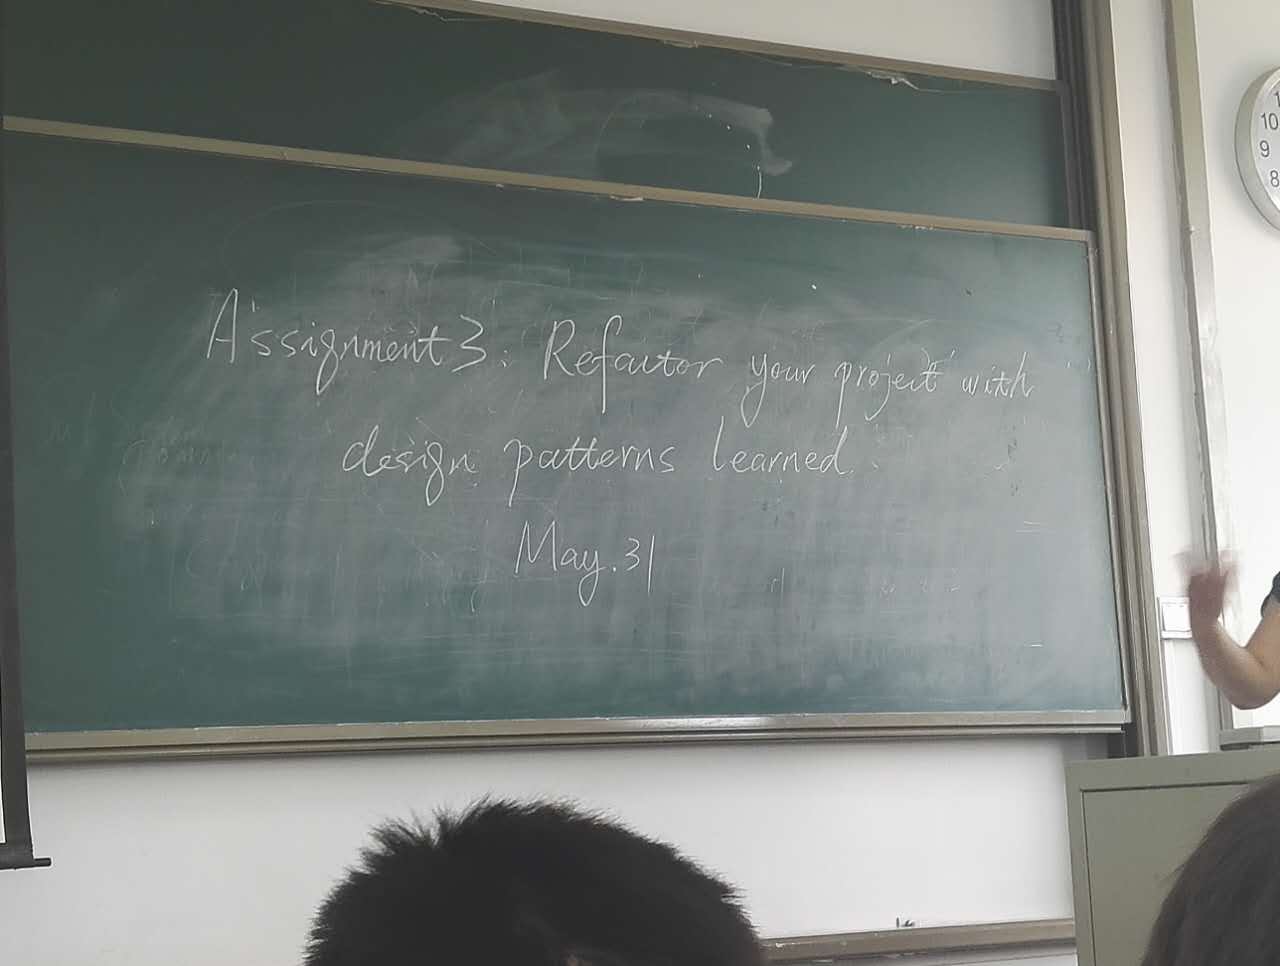 Assignment 3: Refactor your project with
design patterns learned.
May.31
10
9
8